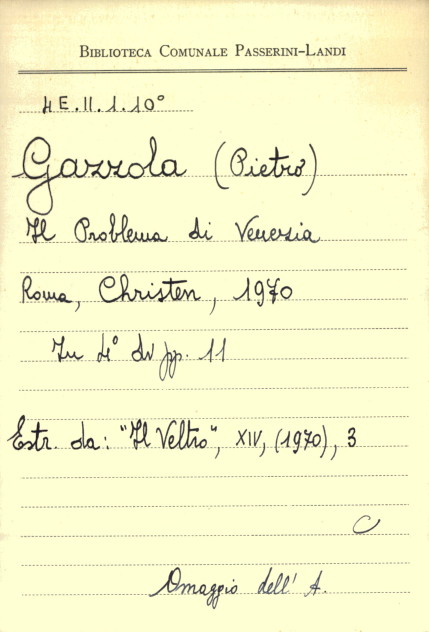 BIBLIOTECA COMUNALE PASSERINI-LANDI
4E.II.1.10°
Gazzola (Pietro)
Il Problema di Venezia
Roma, Christen, 1970
In 4° di pp. 11
Estr. da: "Il Veltro", XIV, (1970), 3
C
Omaggio dell' A.